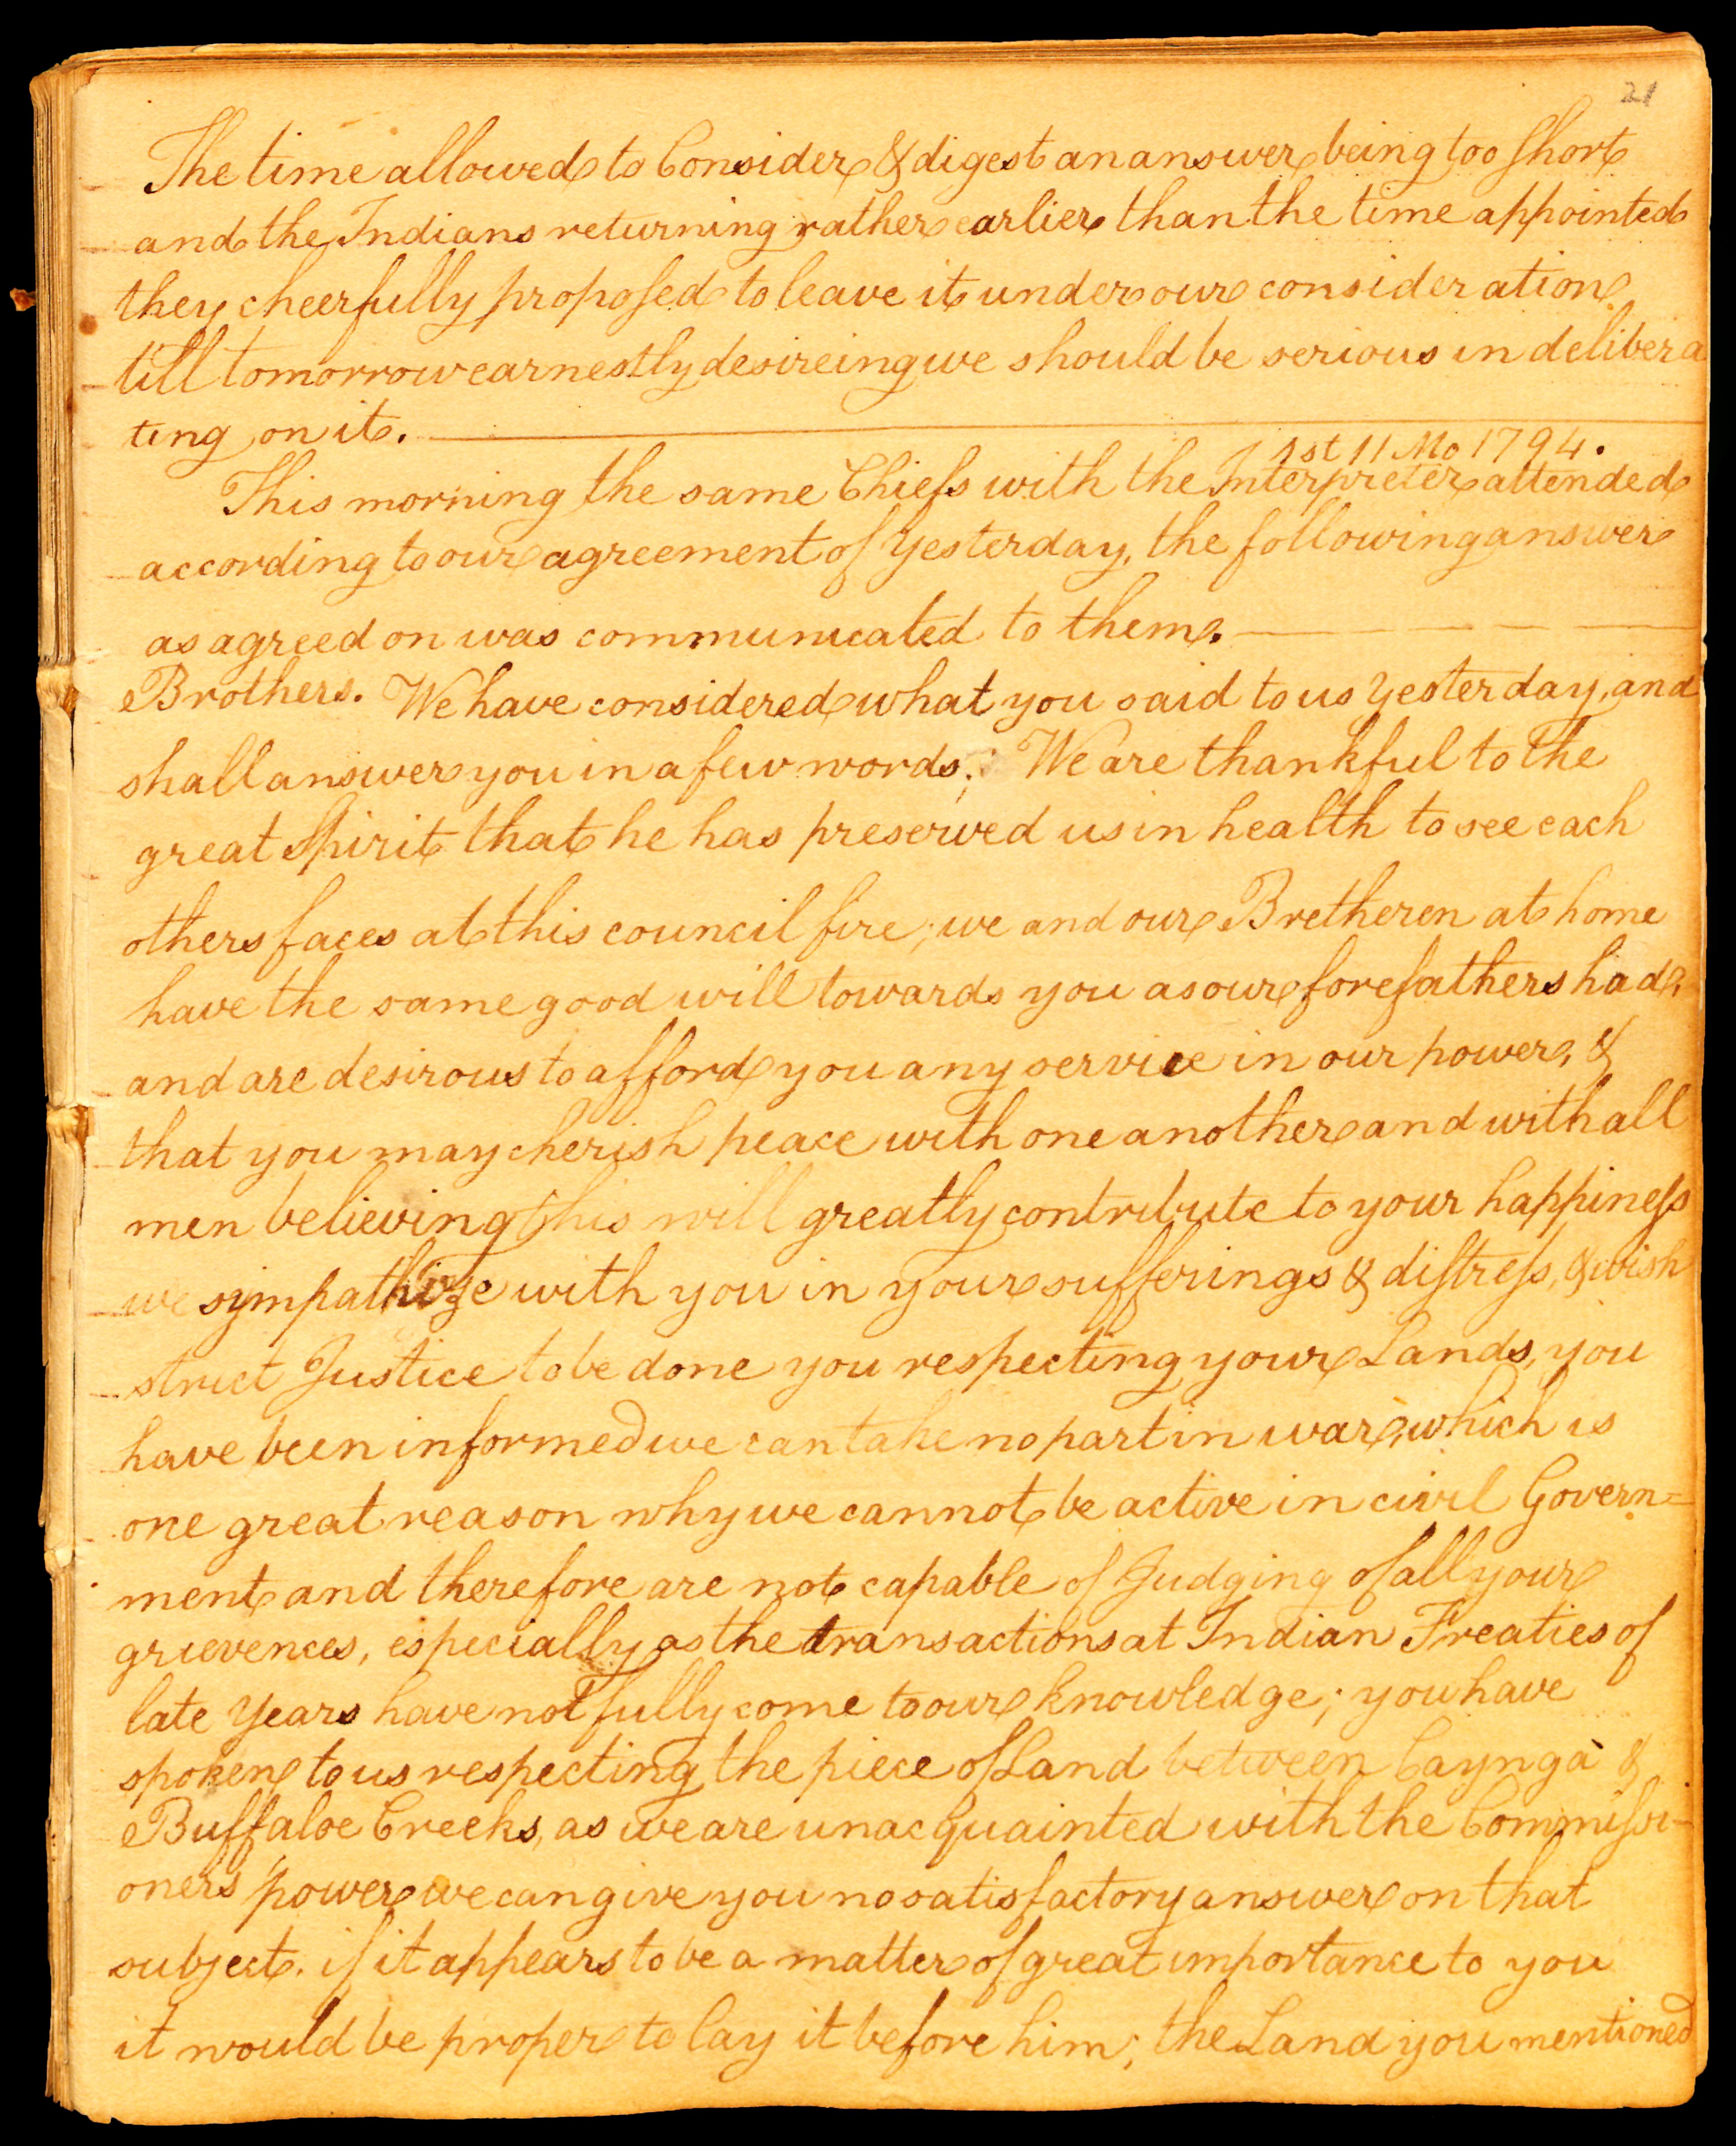 21
The time allowed to Consider & digest an answer being too short
and the Indians returning rather earlier than the time appointed
they cheerfully proposed to leave it under our consideration
till tomorrow earnestly desireing we should be serious in delibera
ting on it.
1st 11 Mo 1794.
This morning the same Chiefs with the Interpreter attended
according to our agreement of Yesterday, the following answer
as agreed on was communicated to them.
Brothers. We have considered what you said to us Yesterday, and
shall answer you in a few words; We are thankful to the
great Spirit that he has preserved us in health to see each
others faces at this council fire; we and our Bretheren at home
have the same good will towards you as our forefathers had,
and are desirous to afford you any service in our power, &
that you may cherish peace with one another and with all
men believing this will greatly contribute to your happiness
we sympathize with you in your sufferings & distress, & wish
strict Justice to be done you respecting your Lands, you
have been informed we can take no part in war, which is
one great reason why we cannot be active in civil Govern=
ment and therefore are not capable of Judging of all your
grievences, especially as the transactions at Indian Treaties of
late Years have not fully come to our knowledge; you have
spoken to us respecting the piece of Land between Caynga &
Buffaloe Creeks, as we are unacquainted with the Commissi-
oners power we can give you no satisfactory answer on that
subject. if it appears to be a matter of great importance to you
it would be proper to lay it before him; the Land you mentioned